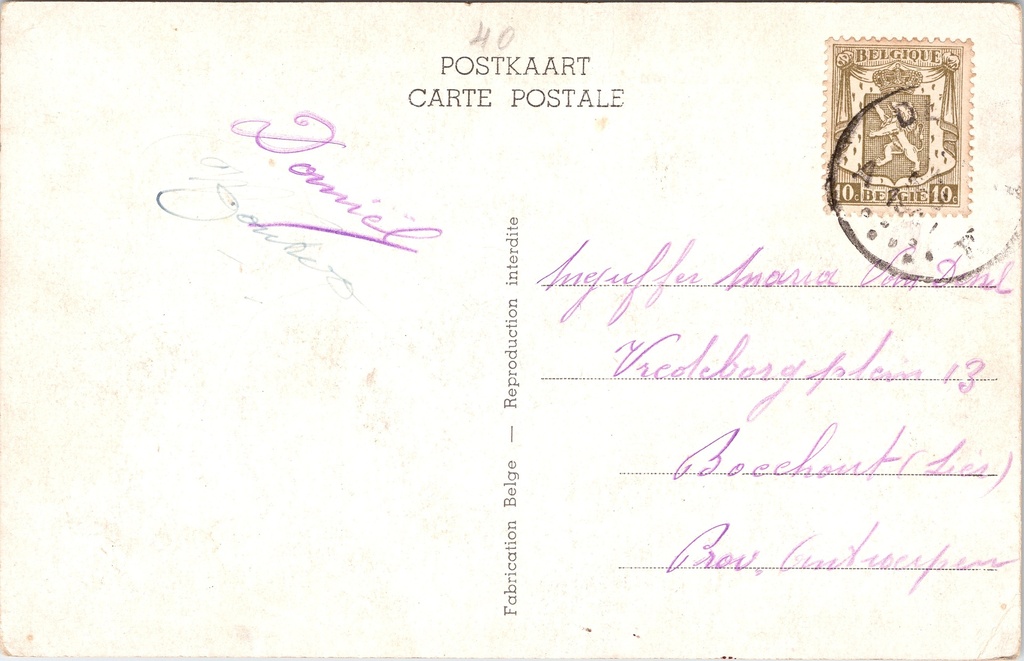 40
POSTKAART
CARTE POSTALE
BELGIQUE
10c BELGIË 10c
Daniël
Fabrication Belge — Reproduction interdite
Maria Van
Vredeborgplein 13
Boechout (Lier)
Prov. Antwerpen